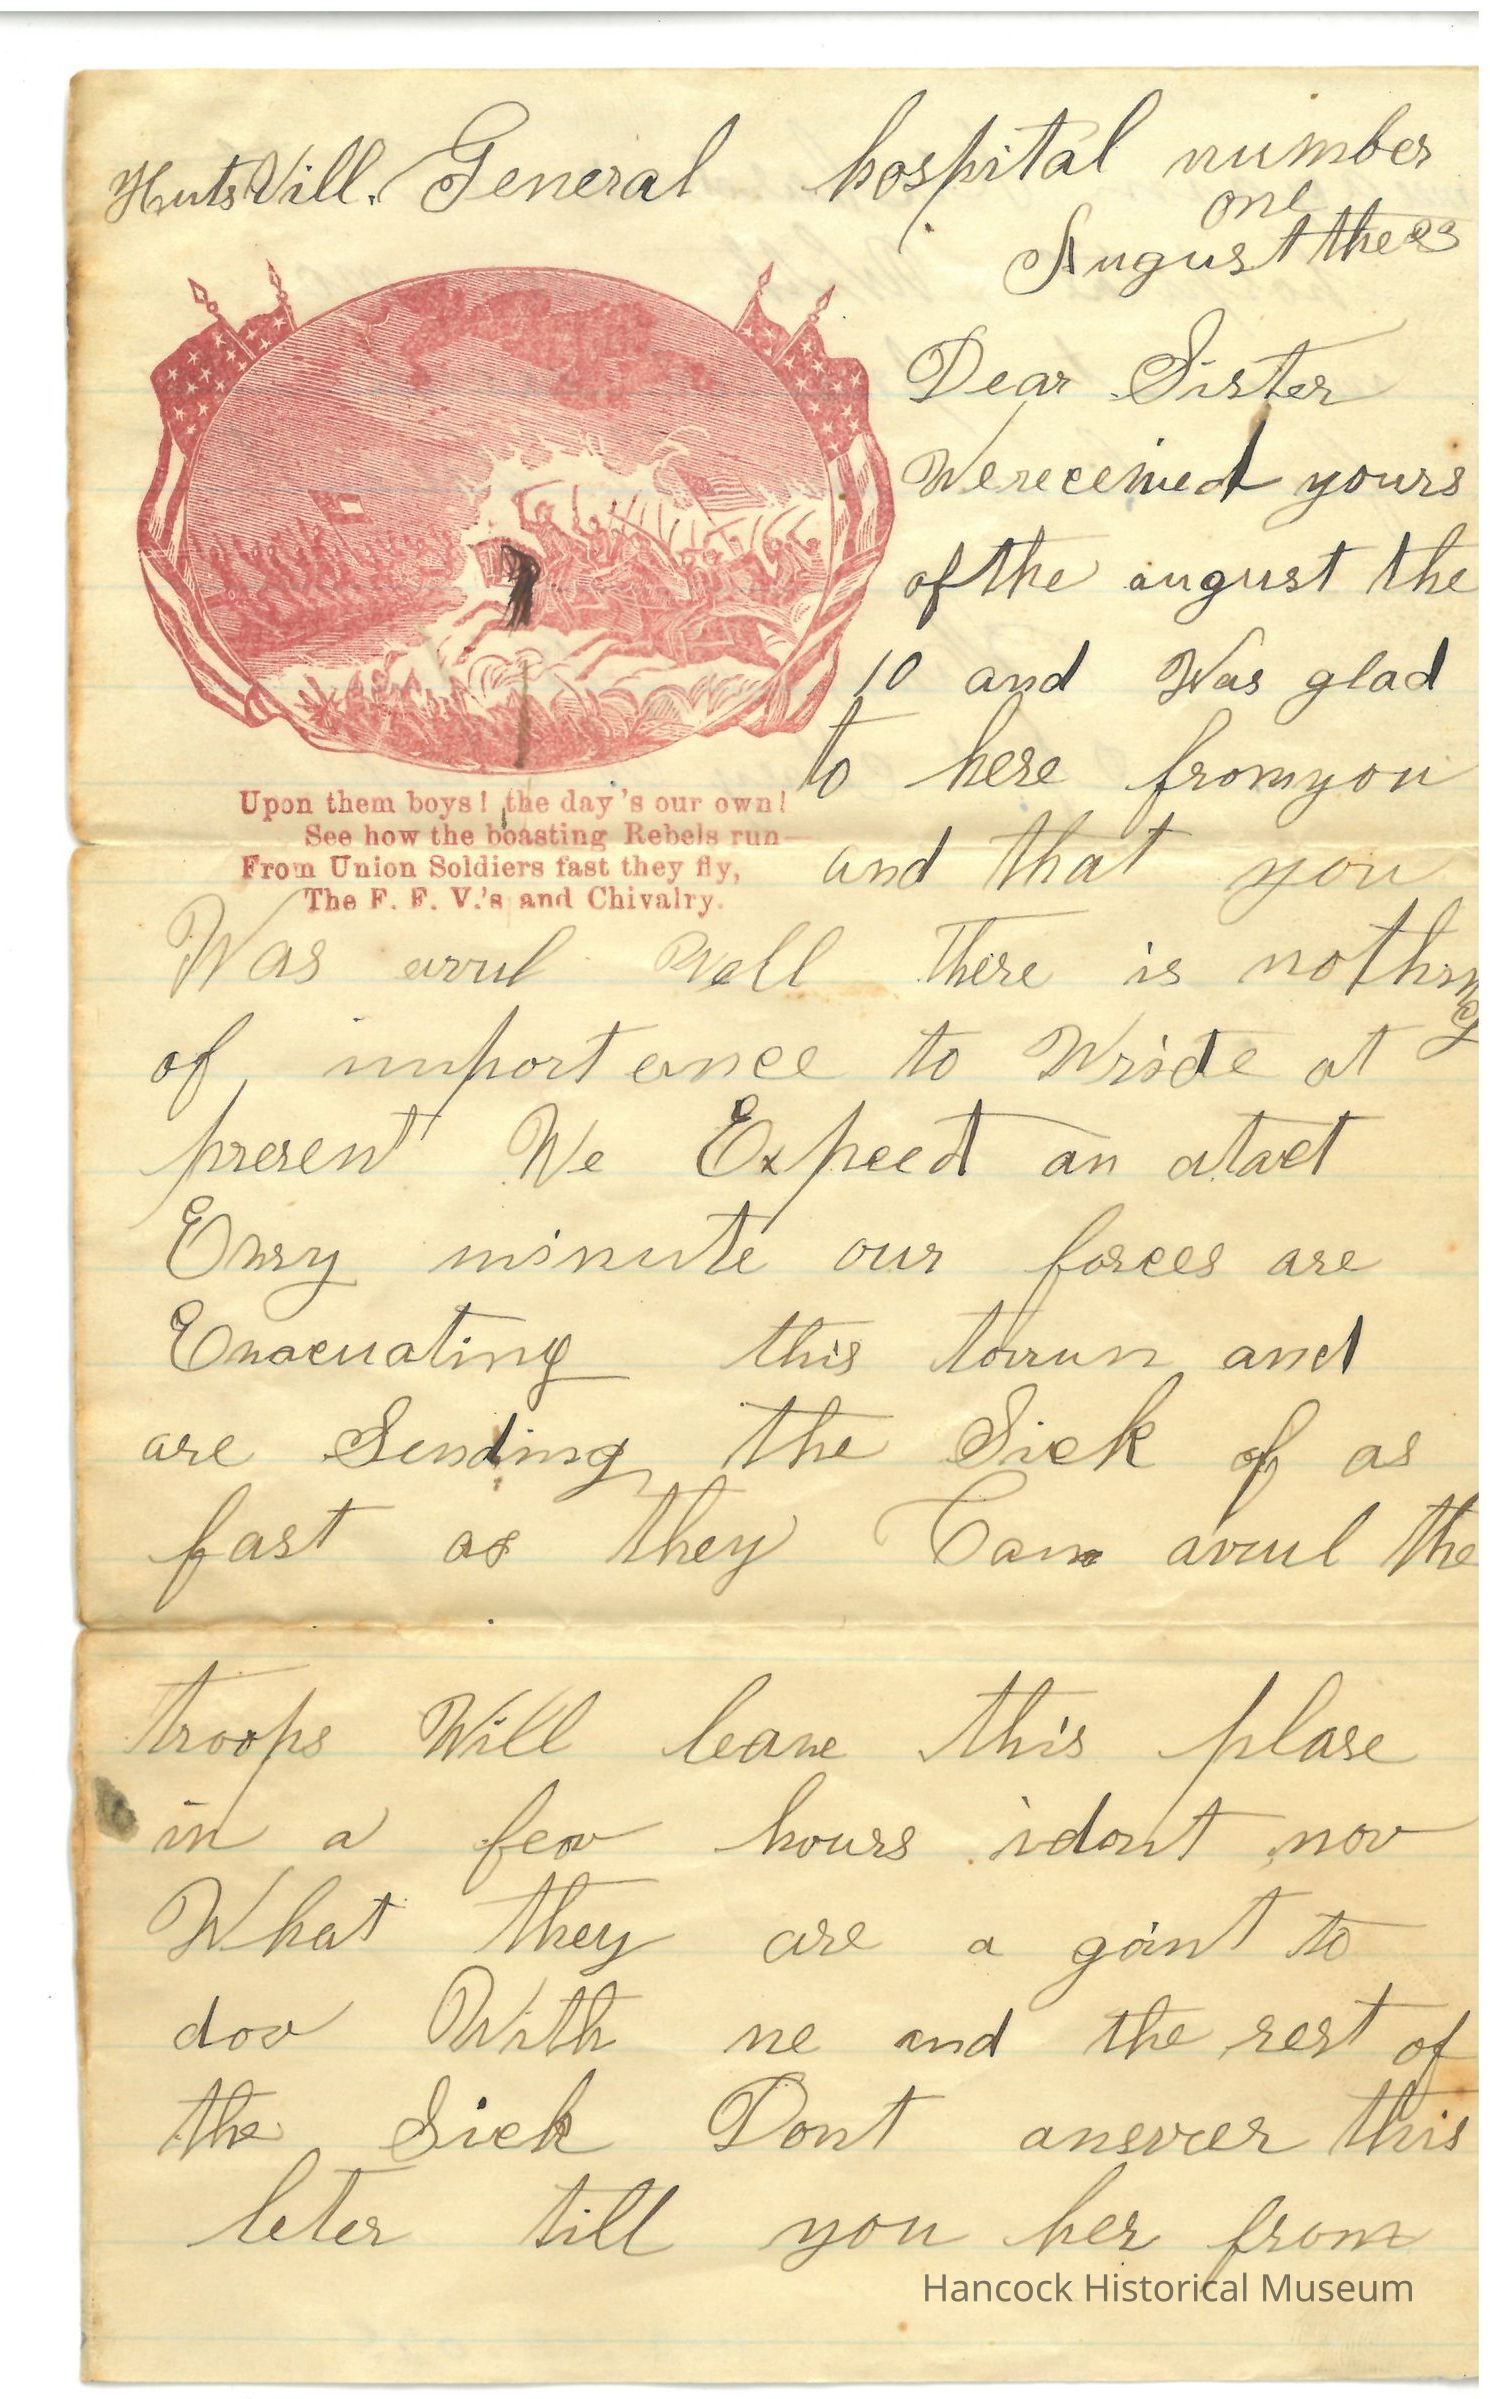 HutsVill. General hospital number
one
August the 28
Dear Sister
We received yours
of the august the
10 and Was glad
to here from you
and that you
Upon them boys! the day's our own!
See how the boasting Rebels run—
From Union Soldiers fast they fly,
The F. F. V.'s and Chivalry.
Was awul Well There is nothing
of importance to Wride at
present We Expecct an atact
Evry minute our forces are
Evacuating this towun and
are Sending the Sick of as
fast as they Can awul the
troops Will leave this plase
in a few hours i dont now
What they are a goint to
dow With me and the rest of
the Sick Dont answer this
leter till you her from
Hancock Historical Museum